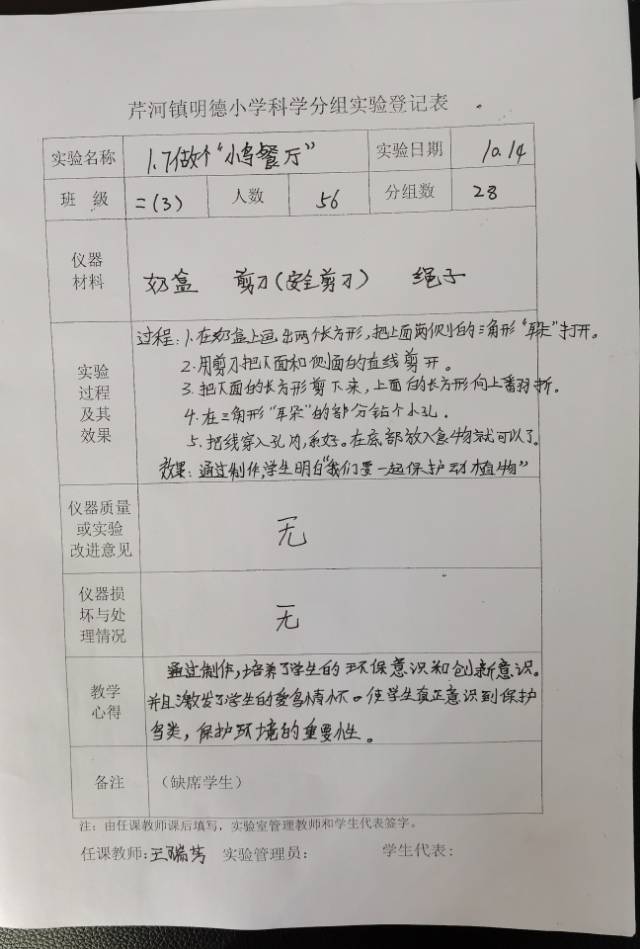 芹河镇明德小学科学分组实验登记表
实验名称 1.7做个“小鸟餐厅” 实验日期 10.14
班 级 二(3) 人数 56 分组数 28
仪器材料 奶盒 剪刀(安全剪刀) 绳子
实验过程及其效果
过程：1.在奶盒上画出两个长方形，把上面两侧的三角形“耳朵”打开。
2.用剪刀把下面和侧面的直线剪开。
3.把下面的长方形剪下来，上面的长方形向上翻折。
4.在三角形“耳朵”的部分钻个小孔.
5.把线穿入孔内，系好。在底部放入食物就可以了
效果：通过制作，学生明白“我们要一起保护动植物”
仪器质量或实验改进意见 无
仪器损坏与处理情况 无
教学心得
通过制作，培养了学生的环保意识和创新意识。
并且激发了学生的爱鸟情怀。使学生真正意识到保护
鸟类，保护环境的重要性。
备注 （缺席学生）
注：由任课教师课后填写，实验室管理教师和学生代表签字。
任课教师:王瑞芳 实验管理员： 学生代表: